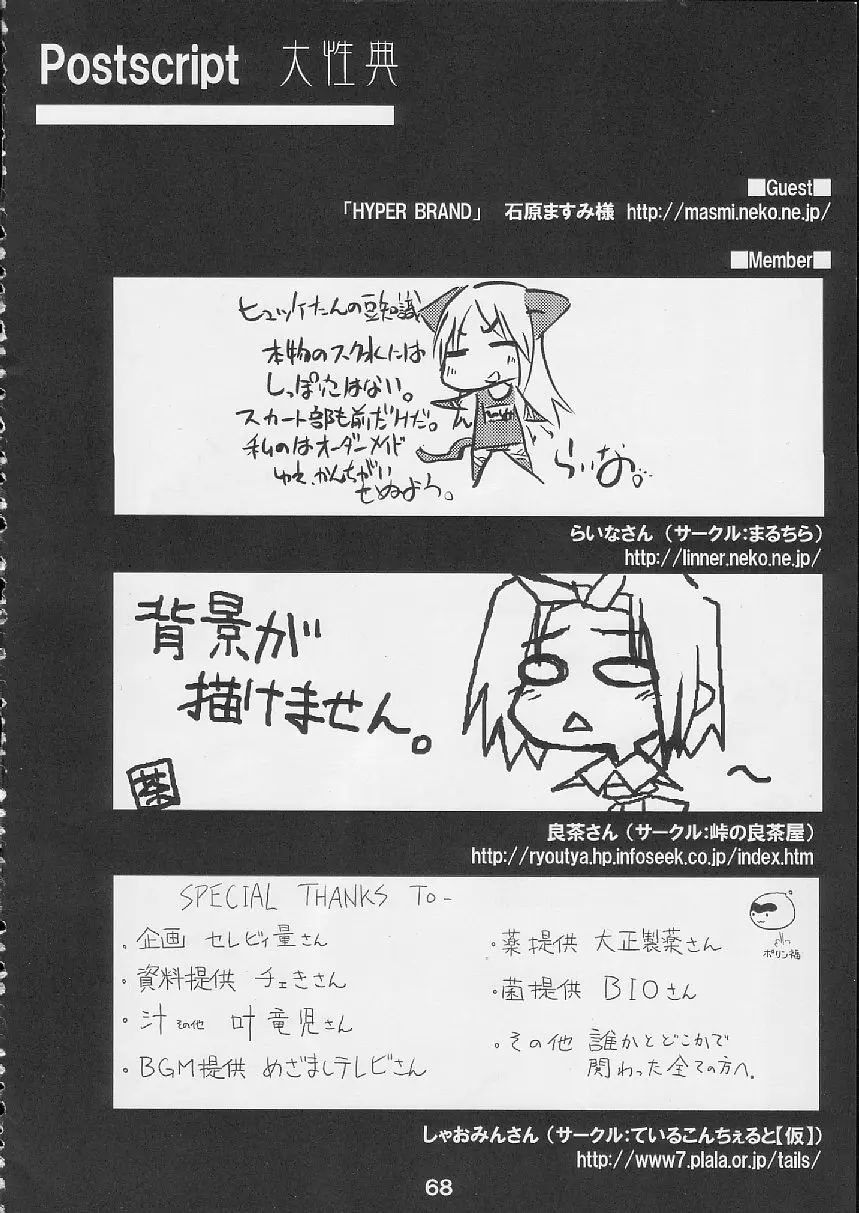 Postscript 大性典
■Guest■
「HYPER BRAND」 石原ますみ様 http://masmi.neko.ne.jp/
■Member■
ヒュッケたんの豆知識
本物のスク水には
しっぽ穴はない。
スカート部も前だけだ。
私のはオーダーメイド
ゆえ、かんちがい
せぬよう。
らいな。
らいなさん（サークル：まるちら）
http://linner.neko.ne.jp/
背景が
描けません。
茶
良茶さん（サークル：峠の良茶屋）
http://ryoutya.hp.infoseek.co.jp/index.htm
SPECIAL THANKS TO-
・企画 セレビィ量さん
・資料提供 チェきさん
・汁その他 叶竜児さん
・BGM提供 めざましテレビさん
・薬提供 大正製薬さん
・菌提供 BIOさん
。その他 誰かとどこかで
関わった全ての方へ.
ポリン福
しゃおみんさん（サークル：ているこんちぇると【仮】）
http://www7.plala.or.jp/tails/
68